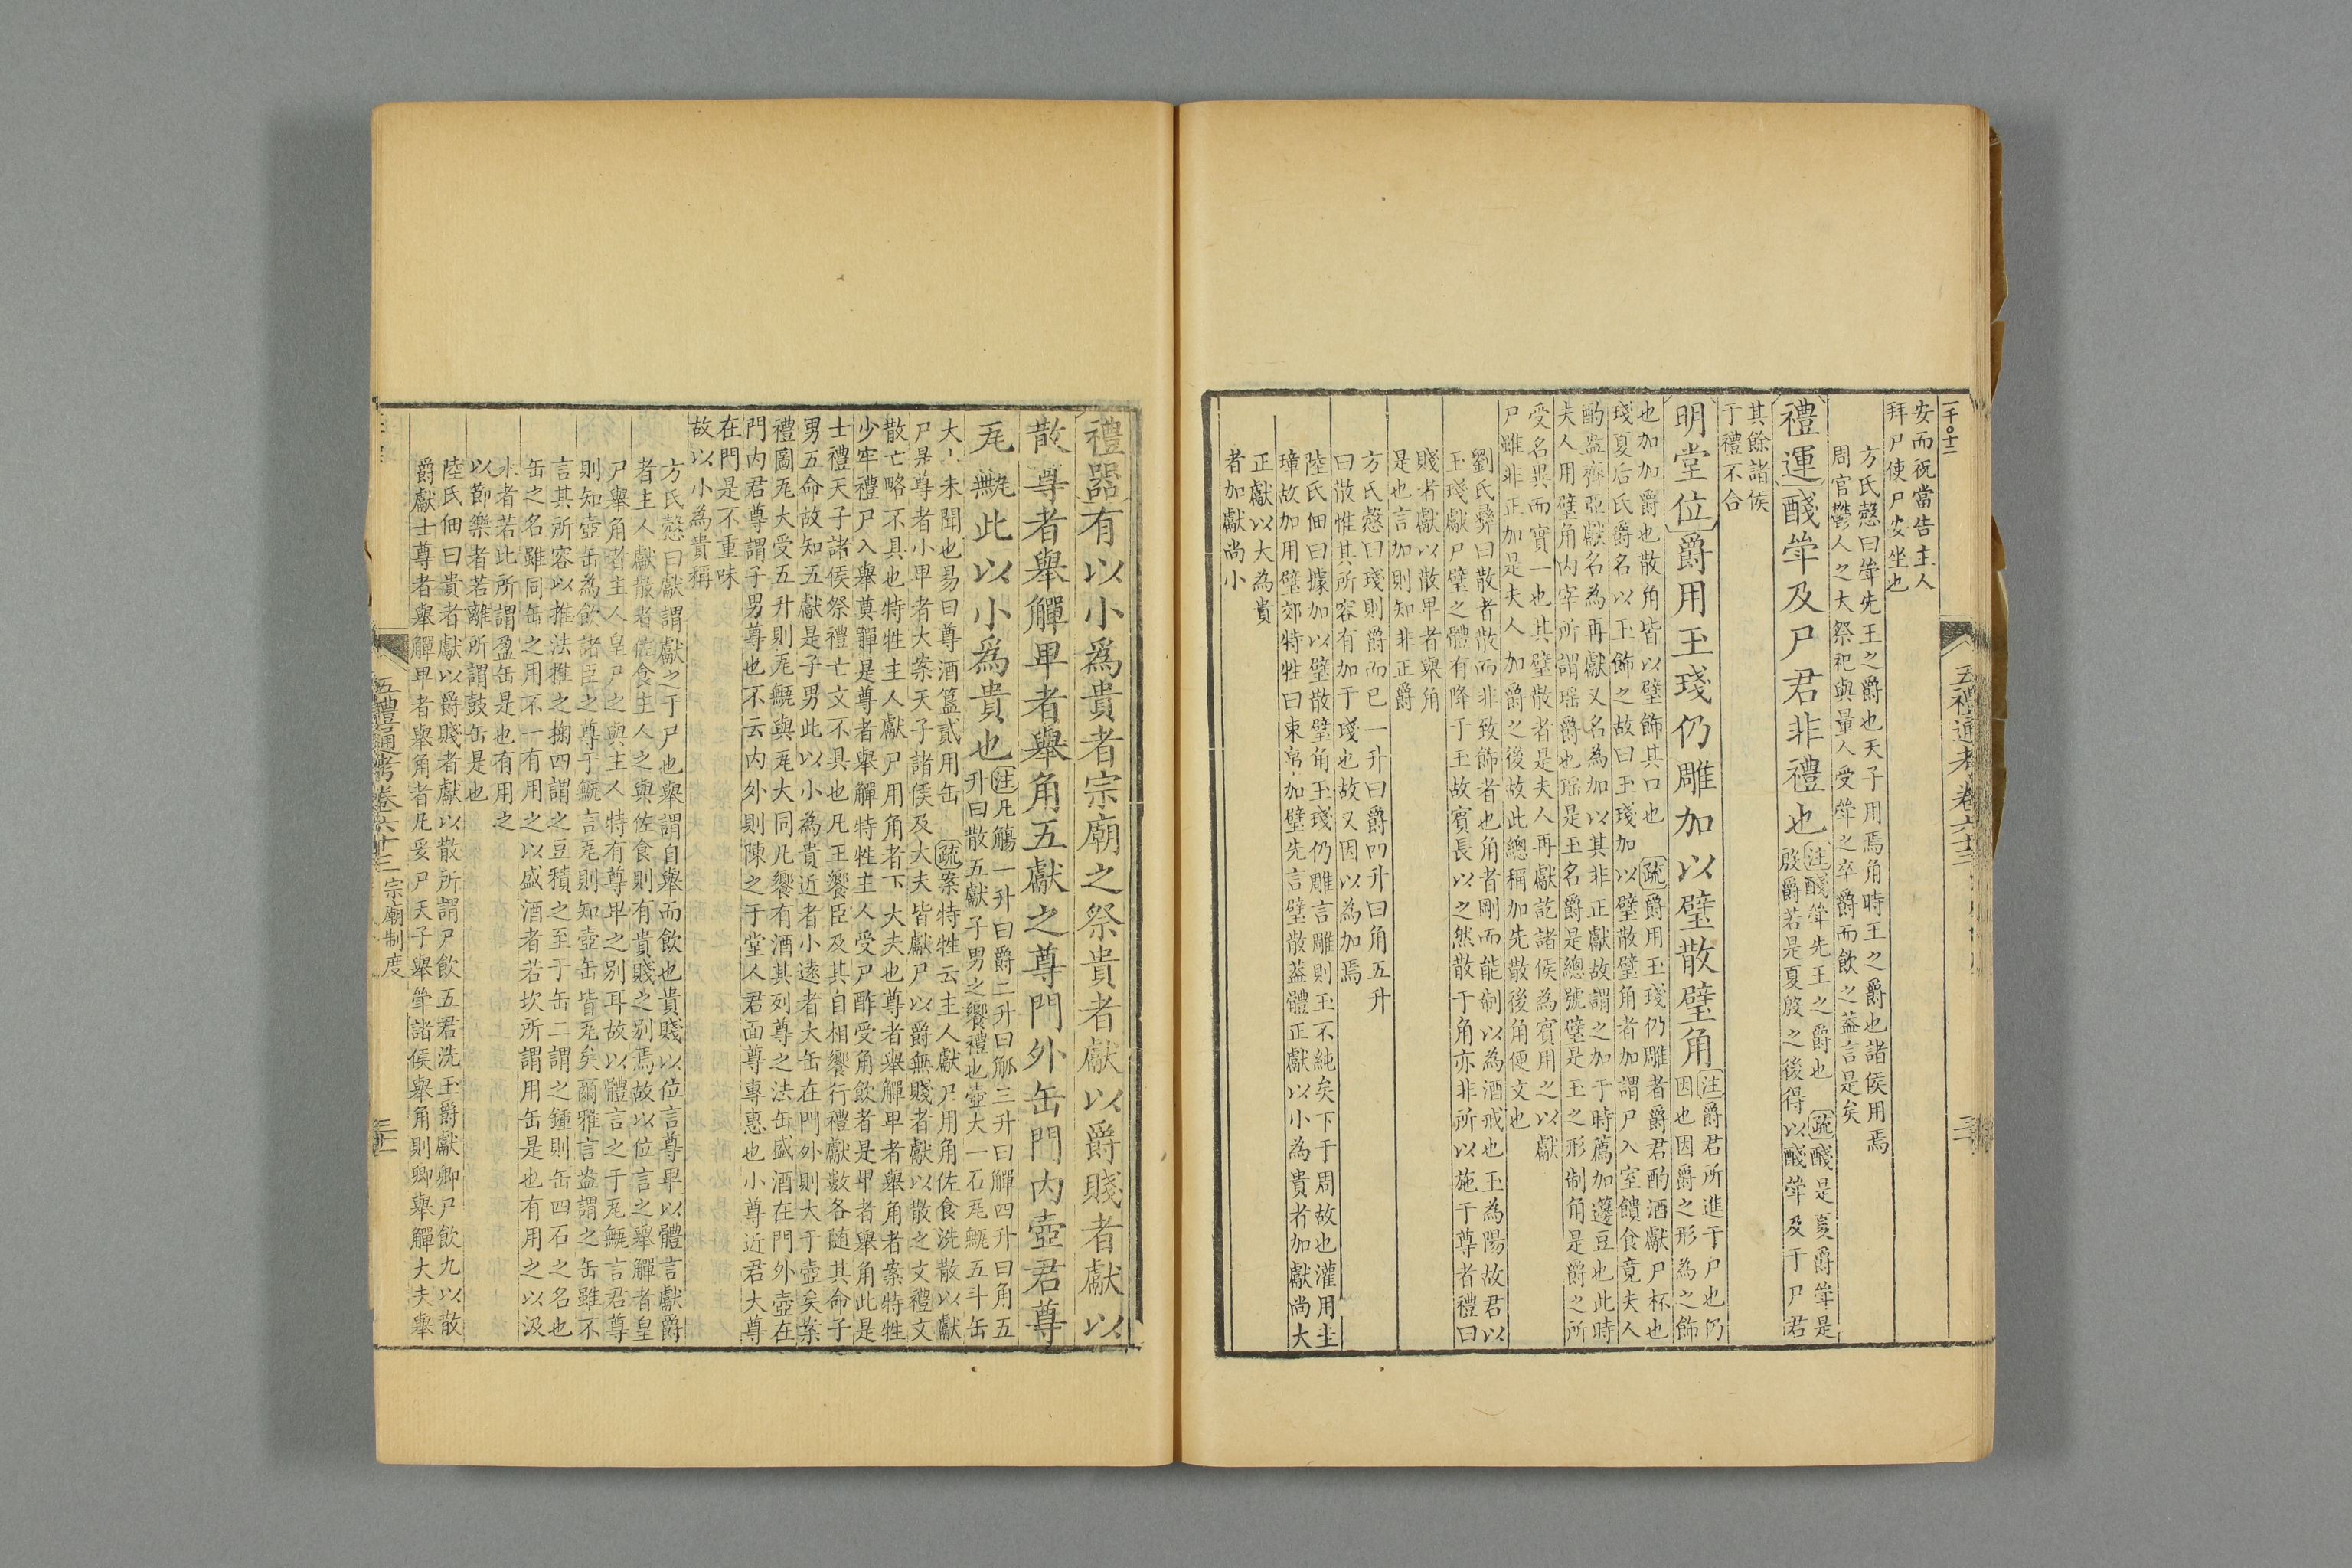 一千○十二
安而祝當告主人
拜尸使尸安坐也
方氏慤曰斝先王之爵也天子用焉角時王之爵也諸侯用焉
周官鬱人之大祭祀與量人受斝之卒爵而飲之葢言是矣
禮運醆斝及尸君非禮也
注醆斝先王之爵也 疏醆是夏爵斝是
殷爵若是夏殷之後得以醆斝及于尸君
其餘諸侯
于禮不合
明堂位爵用玉琖仍雕加以璧散璧角
注爵君所進于尸也仍
因也因爵之形為之飾
也加加爵也散角皆以璧飾其口也 疏爵用玉琖仍雕者爵君酌酒獻尸杯也
琖夏后氏爵名以玉飾之故曰玉琖加以璧散璧角者加謂尸入室饋食竟夫人
酌盎齊亞獻名為再獻又名為加以其非正獻故謂之加于時薦加籩豆也此時
夫人用璧角內宰所謂瑶爵也瑶是玉名爵是總號璧是玉之形制角是爵之所
受名異而實一也其璧散者是夫人再獻訖諸侯為賓用之以獻
尸雖非正加是夫人加爵之後故此總稱加先散後角便文也
劉氏彝曰散者散而非致飾者也角者剛而能制以為酒戒也玉為陽故君以
玉琖獻尸璧之體有降于玉故賓長以之然散于角亦非所以施于尊者禮曰
賤者獻以散卑者舉角
是也言加則知非正爵
方氏慤曰琖則爵而已一升曰爵四升曰角五升
曰散惟其所容有加于琖也故又因以為加焉
陸氏佃曰據加以璧散璧角玉琖仍雕言雕則玉不純矣下于周故也灌用圭
璋故加用璧郊特牲曰東帛加璧先言璧散葢體正獻以小為貴者加獻尚大
正獻以大為貴
者加獻尚小
五禮通考卷六十三
禮器有以小爲貴者宗廟之祭貴者獻以爵賤者獻以
散尊者舉觶卑者舉角五獻之尊門外缶門內壺君尊
瓦甒此以小爲貴也
注凡觴一升曰爵二升曰觚三升曰觶四升曰角五
升曰散五獻子男之饗禮也壺大一石瓦甒五斗缶
大小未聞也易曰尊酒簋貳用缶 疏案特牲云主人獻尸用角佐食洗散以獻
尸是尊者小卑者大案天子諸侯及大夫皆獻尸以爵無賤者獻以散之文禮文
散亡略不具也特牲主人獻尸用角者下大夫也尊者舉觶卑者舉角者案特牲
少牢禮尸入舉奠觶是尊者舉觶特牲主人受尸酢受角飲者是卑者舉角此是
士禮天子諸侯祭禮亡文不具也凡王饗臣及其自相饗行禮獻數各随其命子
男五命故知五獻是子男此以小為貴近者小逺者大缶在門外則大于壺矣案
禮圖瓦大受五升則瓦甒與瓦大同凡饗有酒其列尊之法缶盛酒在門外壺在
門內君尊謂子男尊也不云內外則陳之于堂人君面尊專惠也小尊近君大尊
在門是不重味
故以小為貴稱
方氏慤曰獻謂獻之于尸也舉謂自舉而飲也貴賤以位言尊卑以體言獻爵
者主人獻散者佐食主人之與佐食則有貴賤之别焉故以位言之舉觶者皇
尸舉角者主人皇尸之與主人特有尊卑之别耳故以體言之于瓦甒言君尊
則知壺缶為飲諸臣之尊于甒言瓦則知壺缶皆瓦矣爾雅言盎謂之缶雖不
言其所容以推法推之掬四謂之豆積之至于缶二謂之鍾則缶四石之名也
缶之名雖同缶之用不一有用之以盛酒者若坎所謂用缶是也有用之以汲
水者若此所謂盈缶是也有用之
以節樂者若離所謂鼓缶是也
陸氏佃曰貴者獻以爵賤者獻以散所謂尸飲五君洗玉爵獻卿尸飲九以散
爵獻士尊者舉觶卑者舉角者凡妥尸天子舉斝諸侯舉角則卿舉觶大夫舉
五禮通考卷六十三 宗廟制度